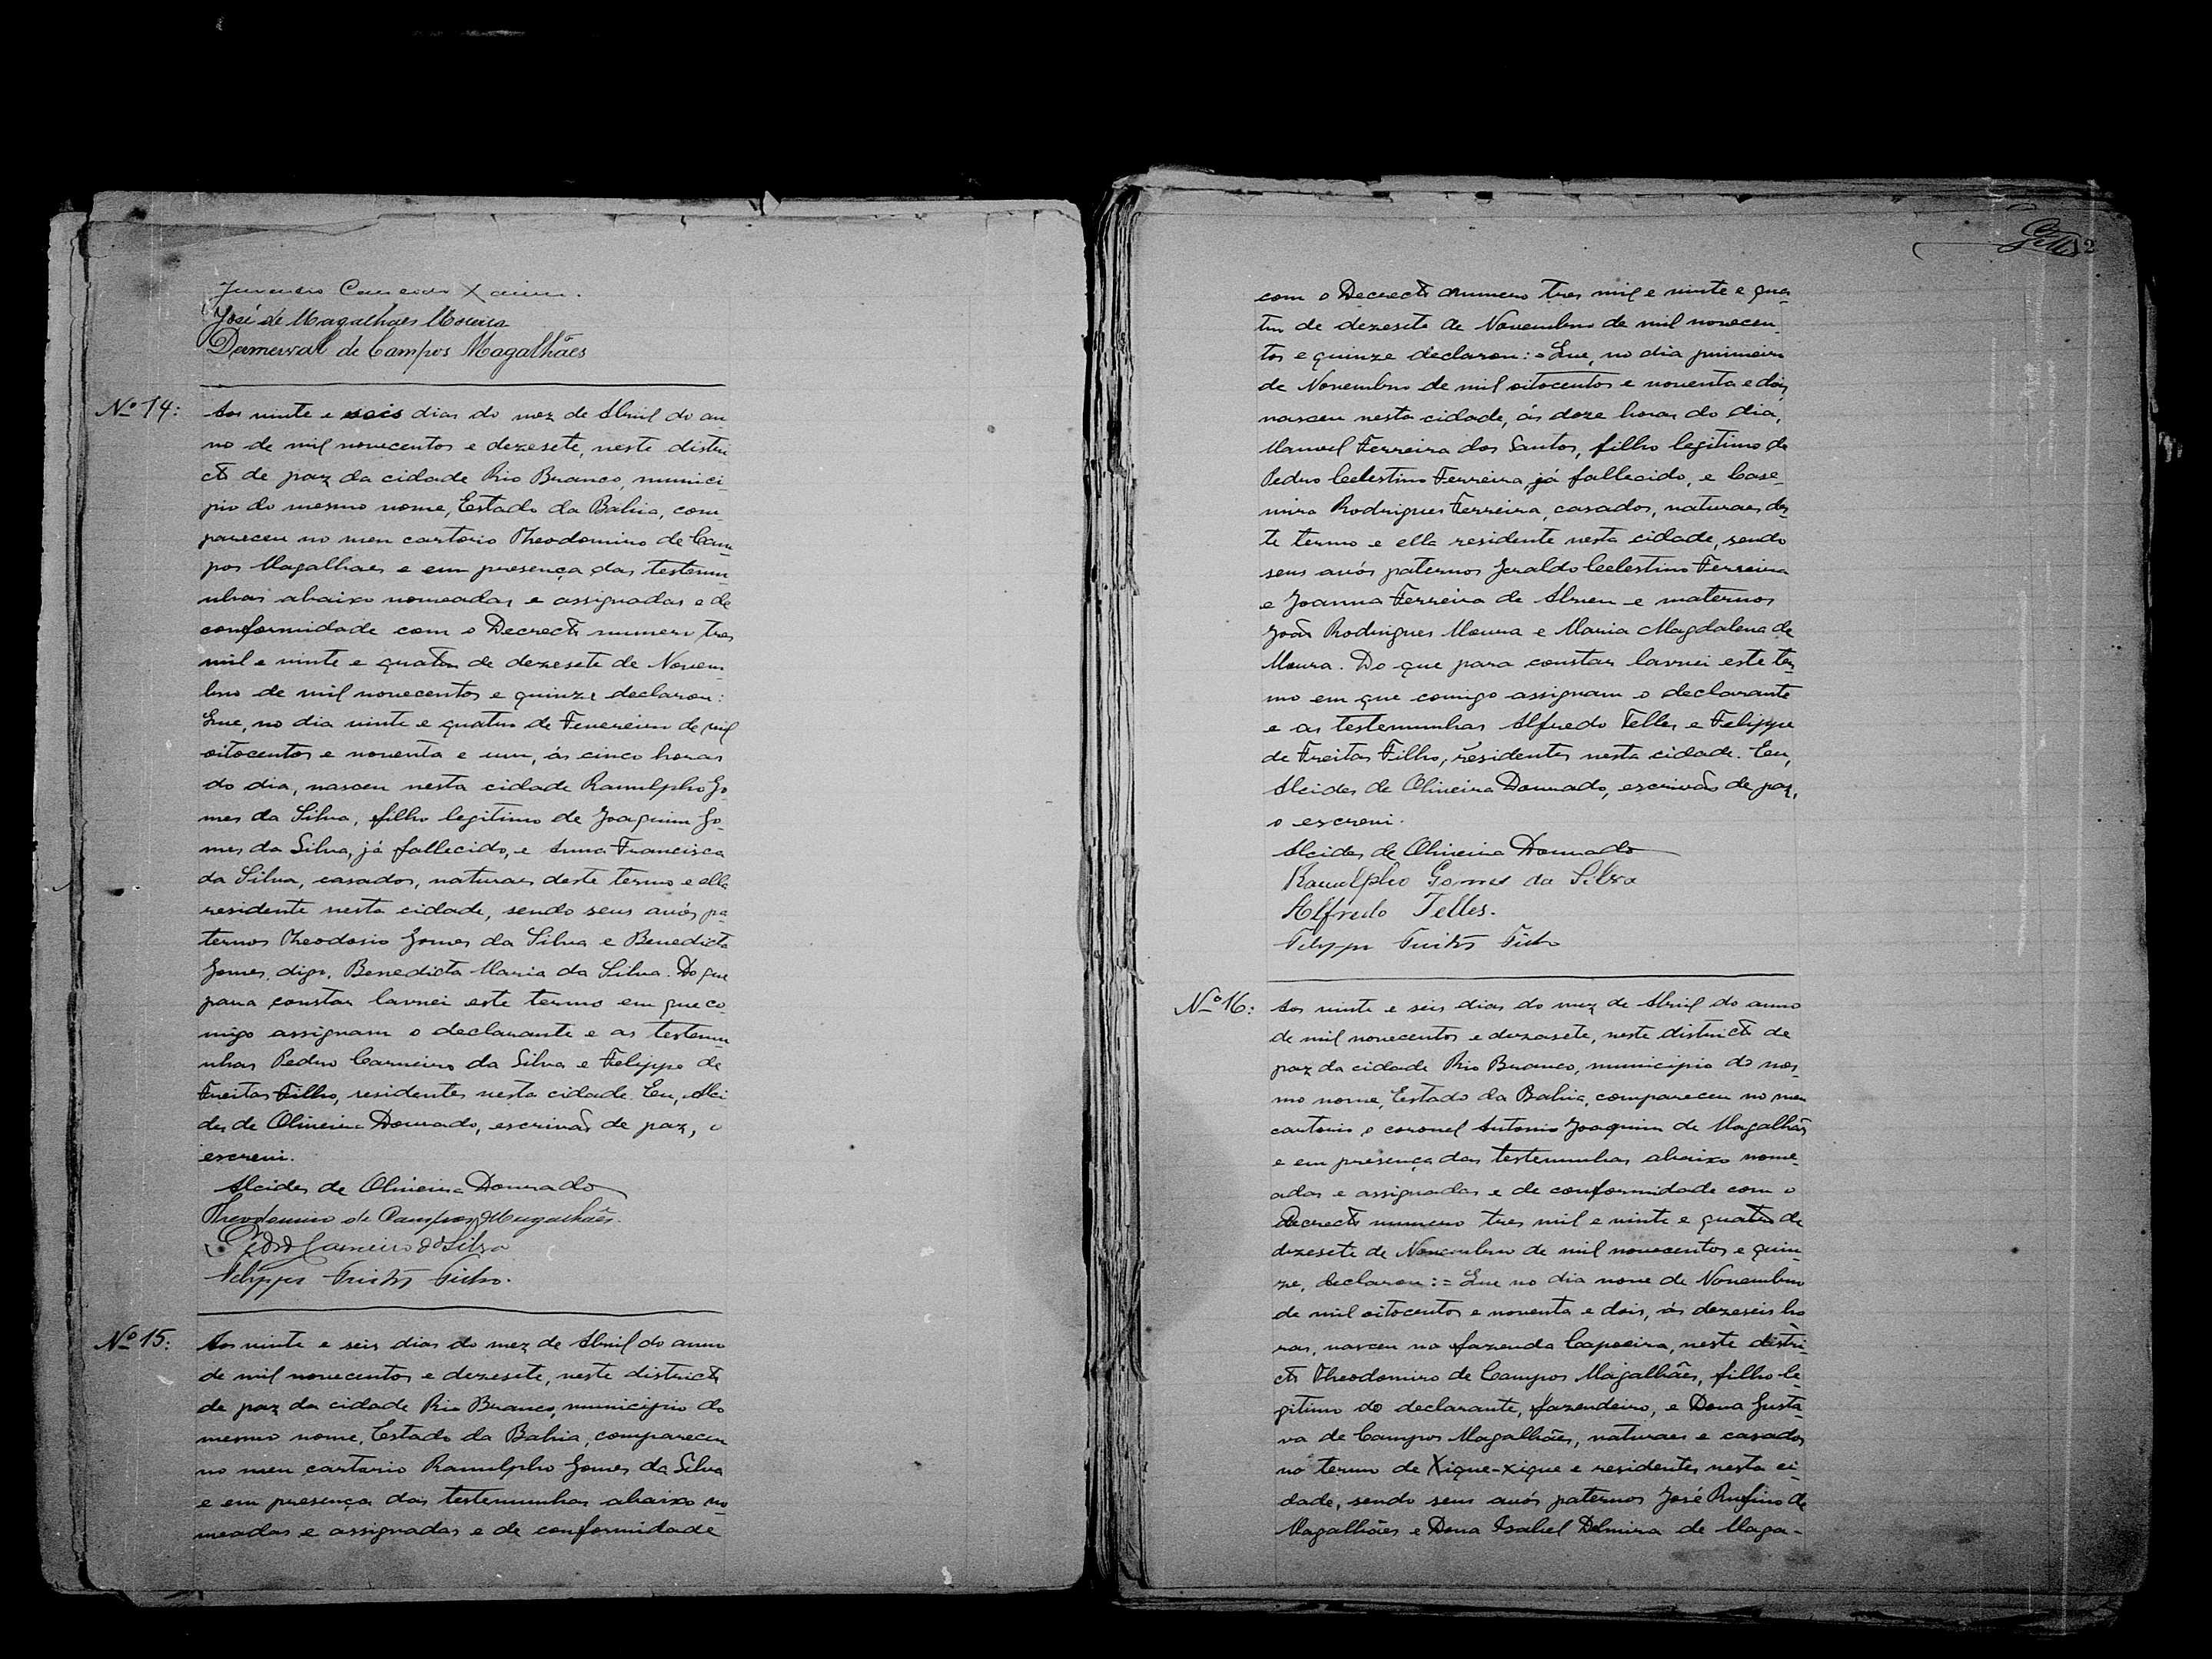 José de Magalhães Moreira
Dermeval de Campos Magalhães
Nº 14:
Aos vinte e seis dias do mez de Abril do an-
no de mil novecentos e dezesete, neste distri-
cto de paz da cidade Rio Branco, munici-
pio do mesmo nome, Estado da Bahia, com-
pareceu no meu cartorio Theodomiro de Cam-
pos Magalhães e em presença das testemu-
nhas abaixo nomeadas e assignadas e de
conformidade com o Decrecto numero tres
mil e vinte e quatro de dezesete de Novem-
bro de mil novecentos e quinze declarou:
Que, no dia vinte e quatro de Fevereiro de mil
oitocentos e noventa e um, ás cinco horas
do dia, nasceu nesta cidade Ranulpho Go-
mes da Silva, filho legitimo de Joaquim Go-
mes da Silva, já fallecido, e Anna Francisca
da Silva, casados, naturaes deste termo e ella
residente nesta cidade, sendo seus avós pa-
ternos Theodosio Gomes da Silva e Benedicta
Gomes, digo, Benedicta Maria da Silva. Do que
para constar lavrei este termo em que co-
migo assignam o declarante e as testemu-
nhas Pedro Carneiro da Silva e Felippe de
Freitas Filho, residentes nesta cidade. Eu, Alci-
des de Oliveira Dourado, escrivão de paz, o
escrevi.
Alcides de Oliveira Dourado
Theodomiro de Campos Magalhães.
Pedro Carneiro da Silva
Felippe Freitas Filho.
Nº 15:
Aos vinte e seis dias do mez de Abril do anno
de mil novecentos e dezesete, neste districto
de paz da cidade Rio Branco, municipio do
mesmo nome, Estado da Bahia, compareceu
no meu cartorio Ranulpho Gomes da Silva
e em presença das testemunhas abaixo no-
meadas e assignadas e de conformidade
12
com o Decrecto numero tres mil e vinte e qua-
tro de dezesete de Novembro de mil novecen-
tos e quinze declarou: Que, no dia primeiro
de Novembro de mil oitocentos e noventa e dois,
nasceu nesta cidade, ás doze horas do dia,
Manoel Ferreira dos Santos, filho legitimo de
Pedro Celestino Ferreira, já fallecido, e Case-
mira Rodrigues Ferreira, casados, naturaes des-
te termo e ella residente nesta cidade, sendo
seus avós paternos Geraldo Celestino Ferreira
e Joanna Ferreira de Abreu e maternos
João Rodrigues Moura e Maria Magdalena de
Moura. Do que para constar lavrei este ter-
mo em que comigo assignam o declarante
e as testemunhas Alfredo Telles e Felippe
de Freitas Filho, residentes nesta cidade. Eu,
Alcides de Oliveira Dourado, escrivão de paz,
o escrevi.
Alcides de Oliveira Dourado
Ranulpho Gomes da Silva
Alfredo Telles.
Felippe Freitas Filho
Nº 16:
Aos vinte e seis dias do mez de Abril do anno
de mil novecentos e dezasete, neste districto de
paz da cidade Rio Branco, municipio do mes-
mo nome, Estado da Bahia, compareceu no meu
cartorio o coronel Antonio Joaquim de Magalhães
e em presença das testemunhas abaixo nome-
adas e assignadas e de conformidade com o
Decrecto numero tres mil e vinte e quatro de
dezesete de Novembro de mil novecentos e quin-
ze, declarou:= Que no dia nove de Novembro
de mil oitocentos e noventa e dois, ás dezeseis ho-
ras, nasceu na fazenda Capoeira, neste distri-
cto Theodomiro de Campos Magalhães, filho le-
gitimo do declarante, fazendeiro, e Dona Gusta-
va de Campos Magalhães, naturaes e casados
no termo de Xique-xique e residentes nesta ci-
dade, sendo seus avós paternos José Rufino de
Magalhães e Dona Isabel Delmira de Maga-